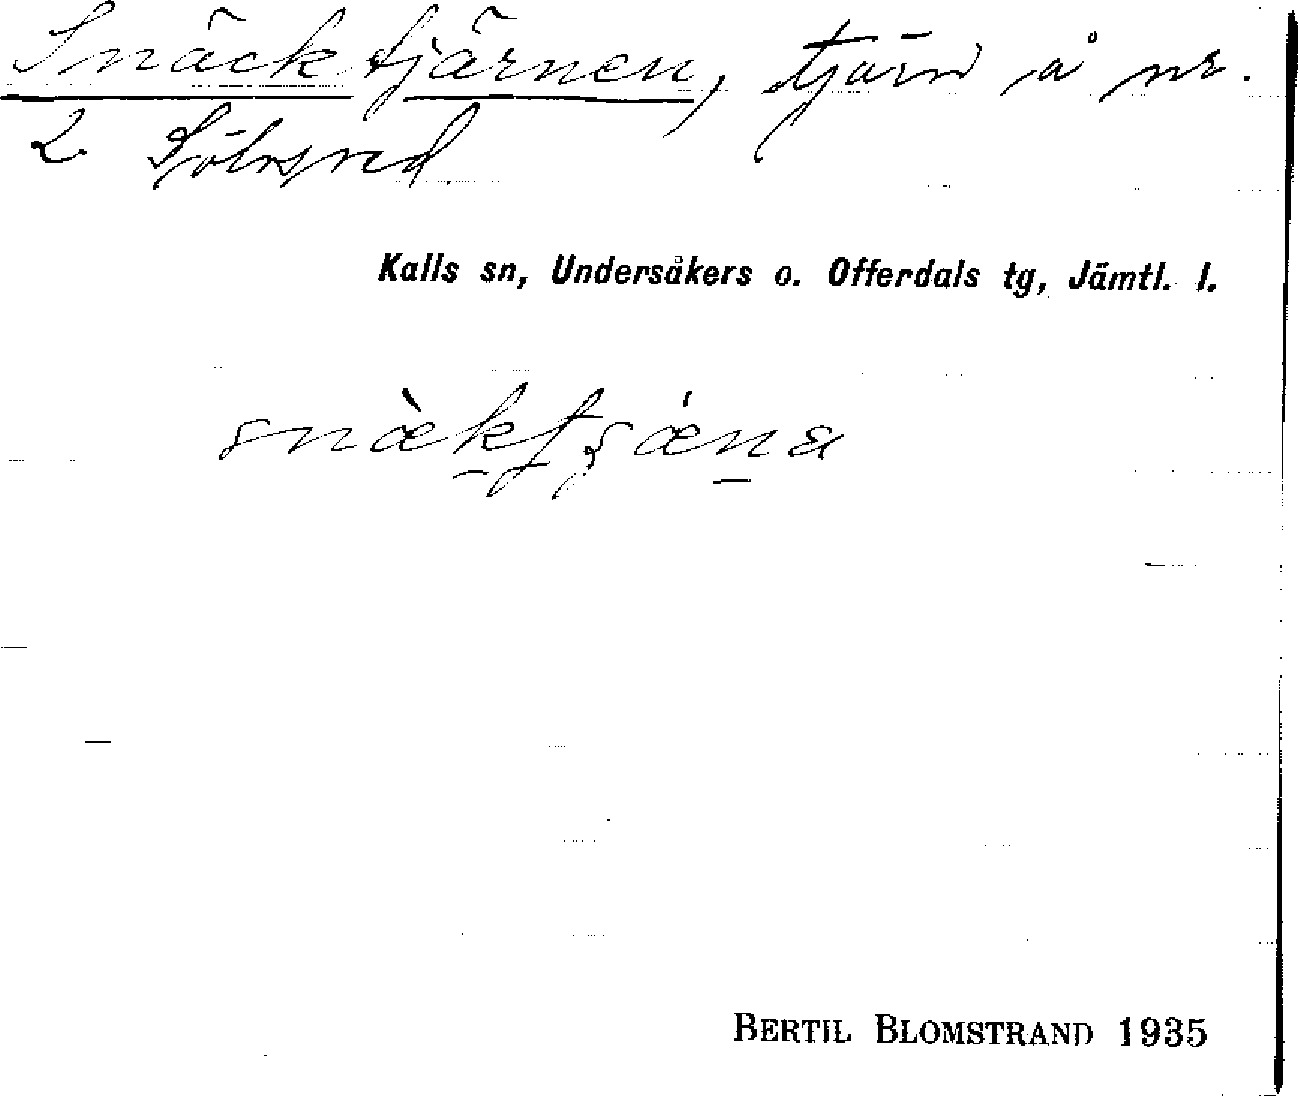 Snäcktjärnen, tjärn å nr.
2 Sölvsved
Kalls sn, Undersåkers o. Offerdals tg, Jämtl. l.
BERTIL BLOMSTRAND 1935